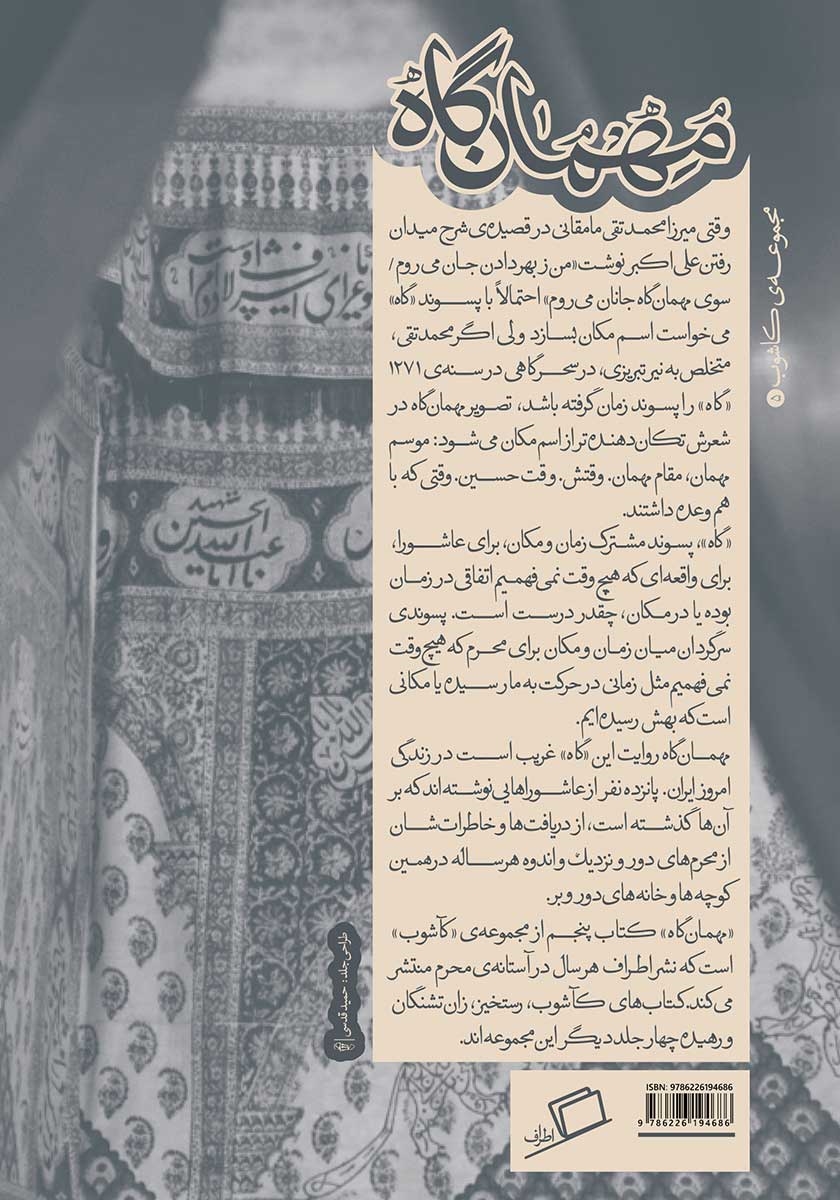 مهمان‌گاه
مجموعه‌ی کآشوب ۵
وقتی میرزا محمدتقی مامقانی در قصیده‌ی شرح میدان
رفتن علی اکبر نوشت «من ز بهر دادن جان می‌روم /
سوی مهمان‌گاه جانان می‌روم» احتمالاً با پسوند «گاه»
می‌خواست اسم مکان بسازد ولی اگر محمدتقی،
متخلص به نیر تبریزی، در سحرگاهی در سنه‌ی ۱۲۷۱
«گاه» را پسوند زمان گرفته باشد، تصویر مهمان‌گاه در
شعرش تکان‌دهنده‌تر از اسم مکان می‌شود: موسم
مهمان، مقام مهمان. وقتش. وقت حسین. وقتی که با
هم وعده داشتند.
«گاه»، پسوند مشترک زمان و مکان، برای عاشورا،
برای واقعه‌ای که هیچ وقت نمی‌فهمیم اتفاقی در زمان
بوده یا در مکان، چقدر درست است. پسوندی
سرگردان میان زمان و مکان برای محرم که هیچ وقت
نمی‌فهمیم مثل زمانی در حرکت به ما رسیده یا مکانی
است که بهش رسیده‌ایم.
مهمان‌گاه روایت این «گاه» غریب است در زندگی
امروز ایران. پانزده نفر از عاشوراهایی نوشته‌اند که بر
آن‌ها گذشته است، از دریافت‌ها و خاطرات‌شان
از محرم‌های دور و نزدیك و اندوه هرساله در همین
کوچه‌ها و خانه‌های دور و بر.
«مهمان‌گاه» کتاب پنجم از مجموعه‌ی «کآشوب»
است که نشر اطراف هر سال در آستانه‌ی محرم منتشر
می‌کند. کتاب‌های کآشوب، رستخیز، زان تشنگان
و رهیده چهار جلد دیگر این مجموعه‌اند.
شهید
عبدالله الحسین
طراحی جلد: حمید قدسی
اطراف
ISBN: 9786226194686
9 786226 194686